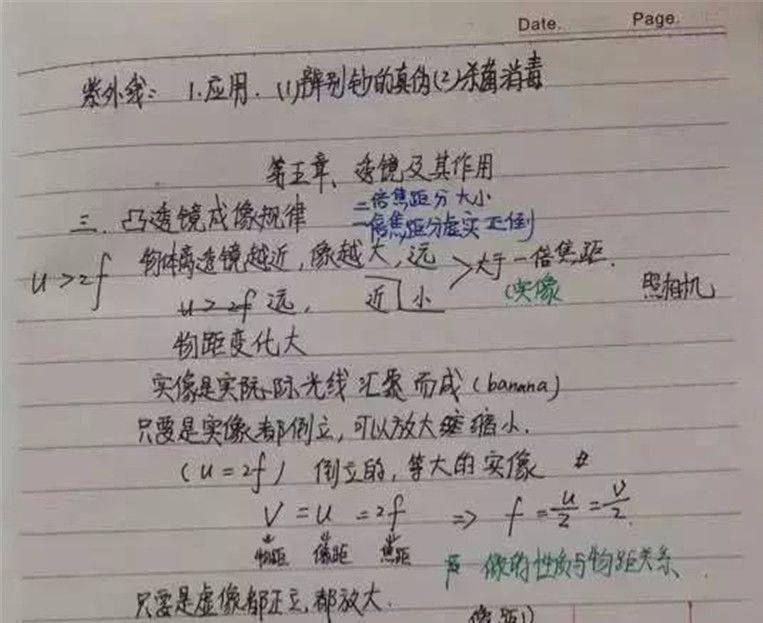 Date. Page.
紫外线: 1.应用. (1)辨别钞的真伪(2)杀菌消毒
第五章、透镜及其作用
三. 凸透镜成像规律 二倍焦距分大小
一倍焦距分虚实正倒
u>2f 物体离透镜越近,像越大,远 >大于一倍焦距.
u>2f 远, 近 小 (实像 照相机
物距变化大
实像是实际际光线汇聚而成(banana)
只要是实像都倒立,可以放大缩小.
(u=2f) 倒立的,等大的实像
V=u=2f => f=u/2=v/2.
物距 像距 焦距 像的性质与物距关系
只要是虚像都正立,都放大.
像距